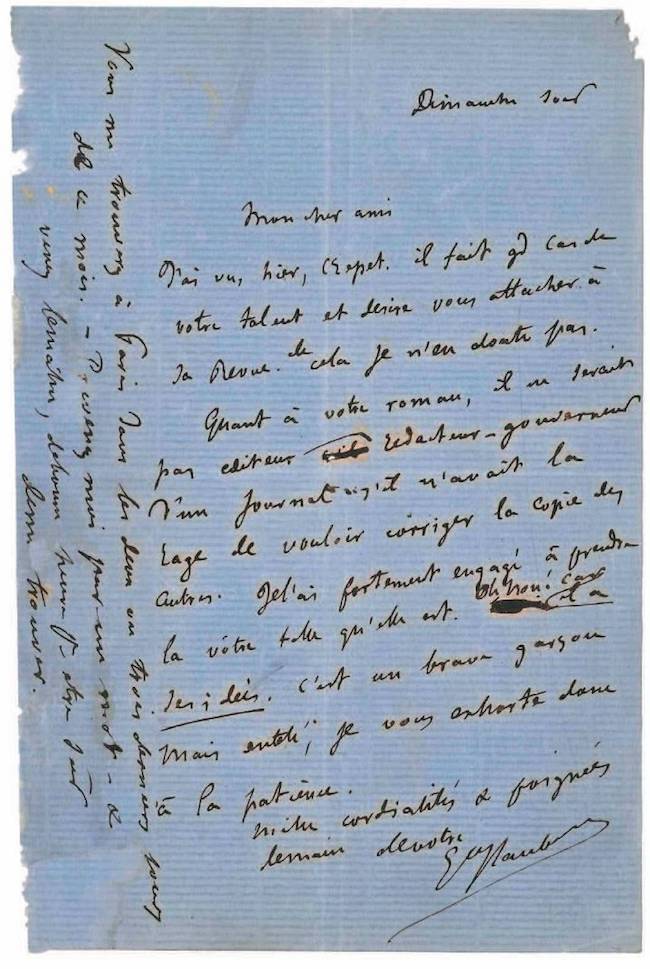 Dimanche soir
Mon cher ami
J'ai vu, hier, Crepet. il fait gd cas de
votre talent et desire vous attacher à
sa Revue. de cela je n'en doute pas.
Quant à votre roman, il ne serait
pas editeur redacteur-gouverneur
d'un journal s'il n'avait la
rage de vouloir corriger la copie des
autres. Je l'ai fortement engagé à prendre
la vôtre telle qu'elle est. Oh non! car
il a
ses idées. c'est un brave garçon
mais entêté; je vous exhorte donc
à la patience.
mille cordialités & poignées
de main de votre
Gve Flaubert
Vous me trouverez à Paris dans les deux ou trois derniers jours
de ce mois. – Prévenez moi par un mot – &
venez le matin, de bonne heure pr être sûr
de me trouver.